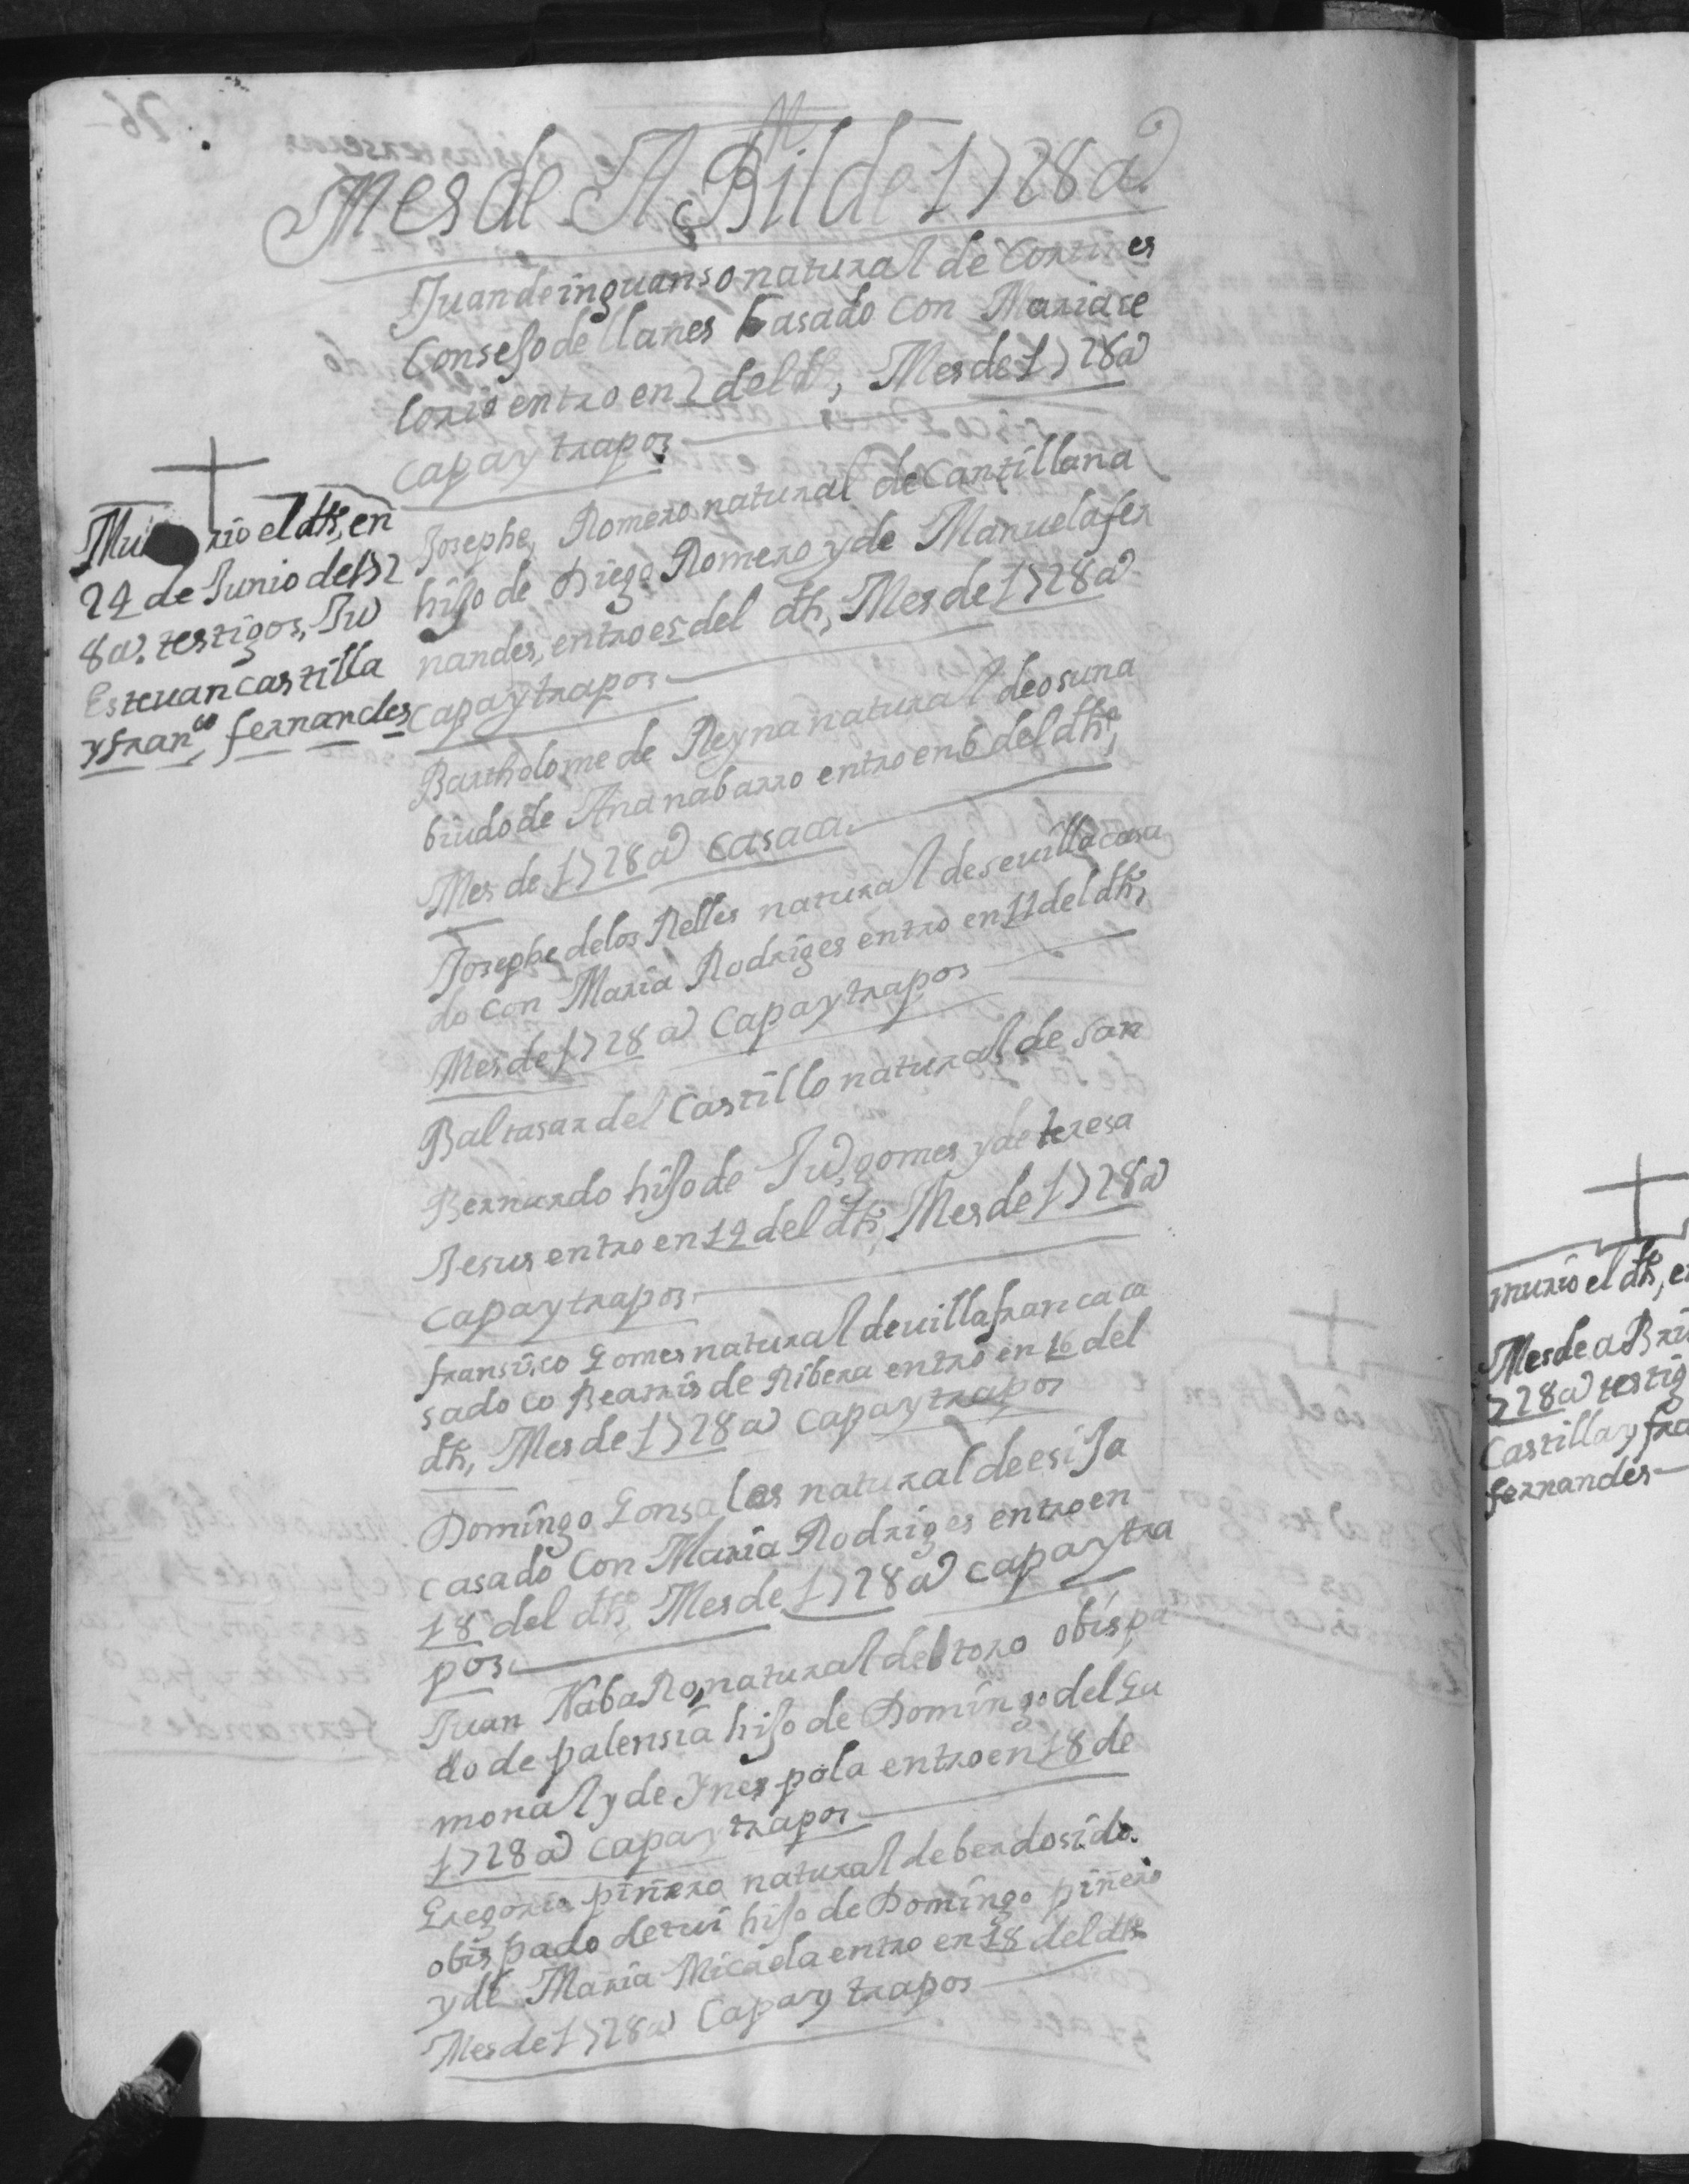 Mes de ABRil de 1728 a.
Juan de inguanso natural de Cortines
Consejo de llanes Casado Con Maria se
lorio entro en 2 del dho, Mes de 1728 a
capa y trapos
Josephe, Romero natural de Cantillana
hijo de Diego Romero y de Manuela fer
nandes, entro e 5 del dho, Mes de 1728 a
capa y trapos
Bartholome de Reyna natural de osuna
biudo de Ana nabarro entro en 6 del dho,
Mes de 1728 a casaca
Josephe de los Relles natural de sevilla casa
do con Maria Rodriges entro en 11 del dho,
Mes de 1728 a Capa y trapos
Baltasar del Castillo natural de san
Bernardo hijo de Ju, gomes y de teresa
Jesus entro en 12 del dho, Mes de 1728 a
capa y trapos
fransisco Gomes natural de villafranca ca
sado co Beatris de Ribera entro en 16 del
dho, Mes de 1728 a capa y trapos
Domingo Gonsales natural de esija
casado Con Maria Rodriges entro en
18 del dho, Mes de 1728 a capa y tra
pos
Juan NabaRo, natural del toro obispa
do de palensia hijo de Domingo del Gu
monal y de Ynes pola entro en 18 de
1728 a capa y trapos
Gregorio piñero natural de berdosido
obispado de tui hijo de Domingo piñero
y de Maria Micaela entro en 18 del dho
Mes de 1728 a Capa y trapos
Murio el dho, en
24 de Junio de 172
8 a. testigos, Ju
Estevan castilla
y franco, fernandes
murio el dho, e
Mes de aBri
728 a testig
Castilla y fra
fernandes